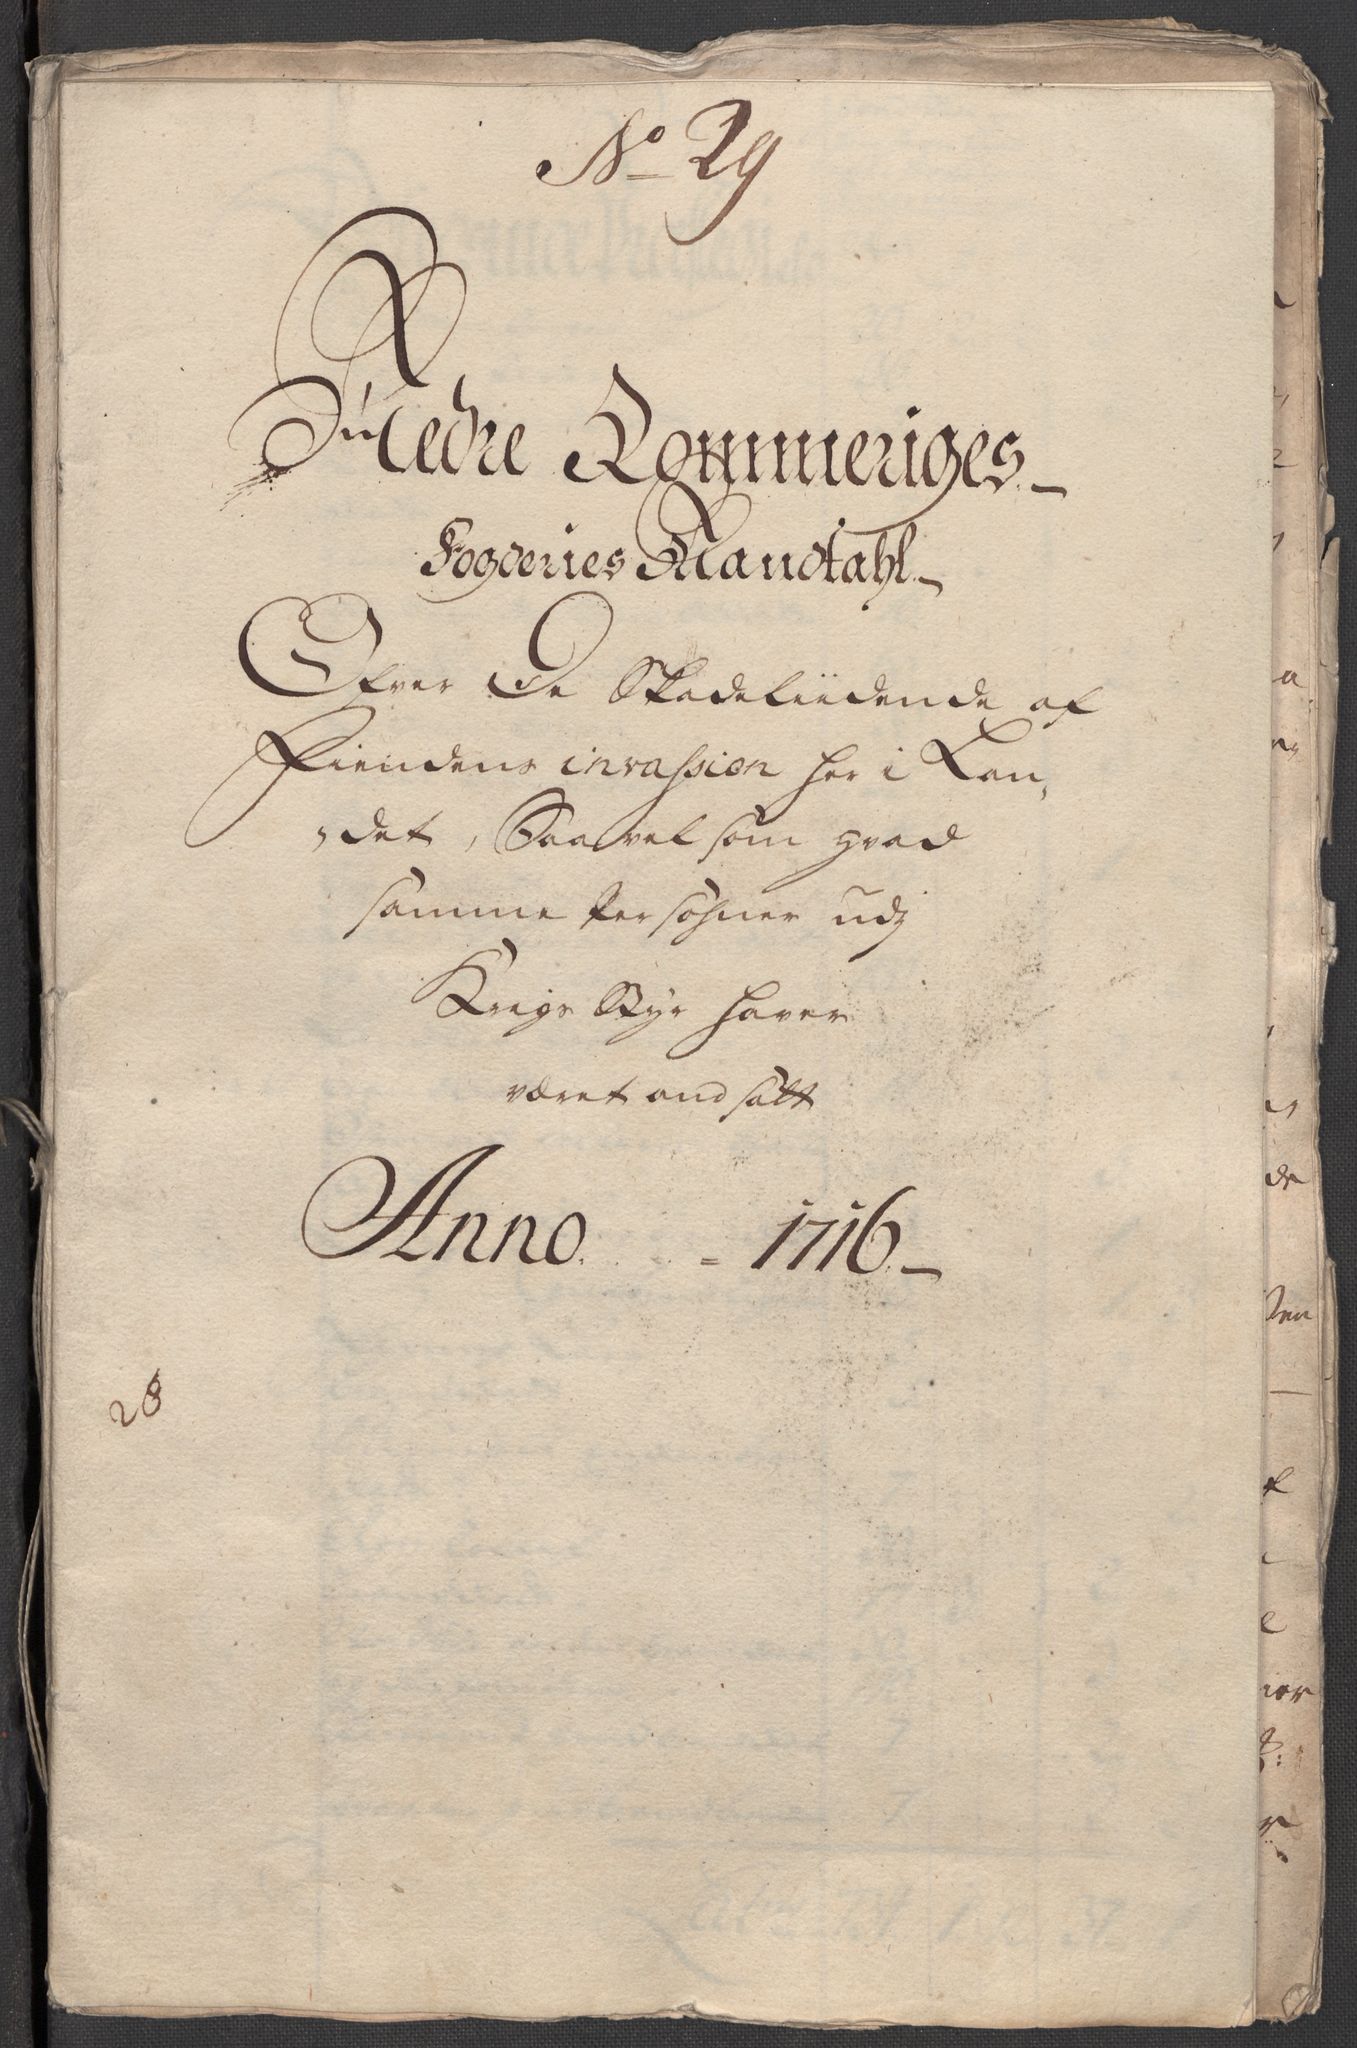 No 29
Nedre Rommeriges
Fogderies Mandtahl
Ofver De Skadeliidende af
Fiendens invassion her i Lan,
,det, Saa vel som hvad
samme Persohner udj
Krigs Styr haver
været andsatt
Anno 1716
28